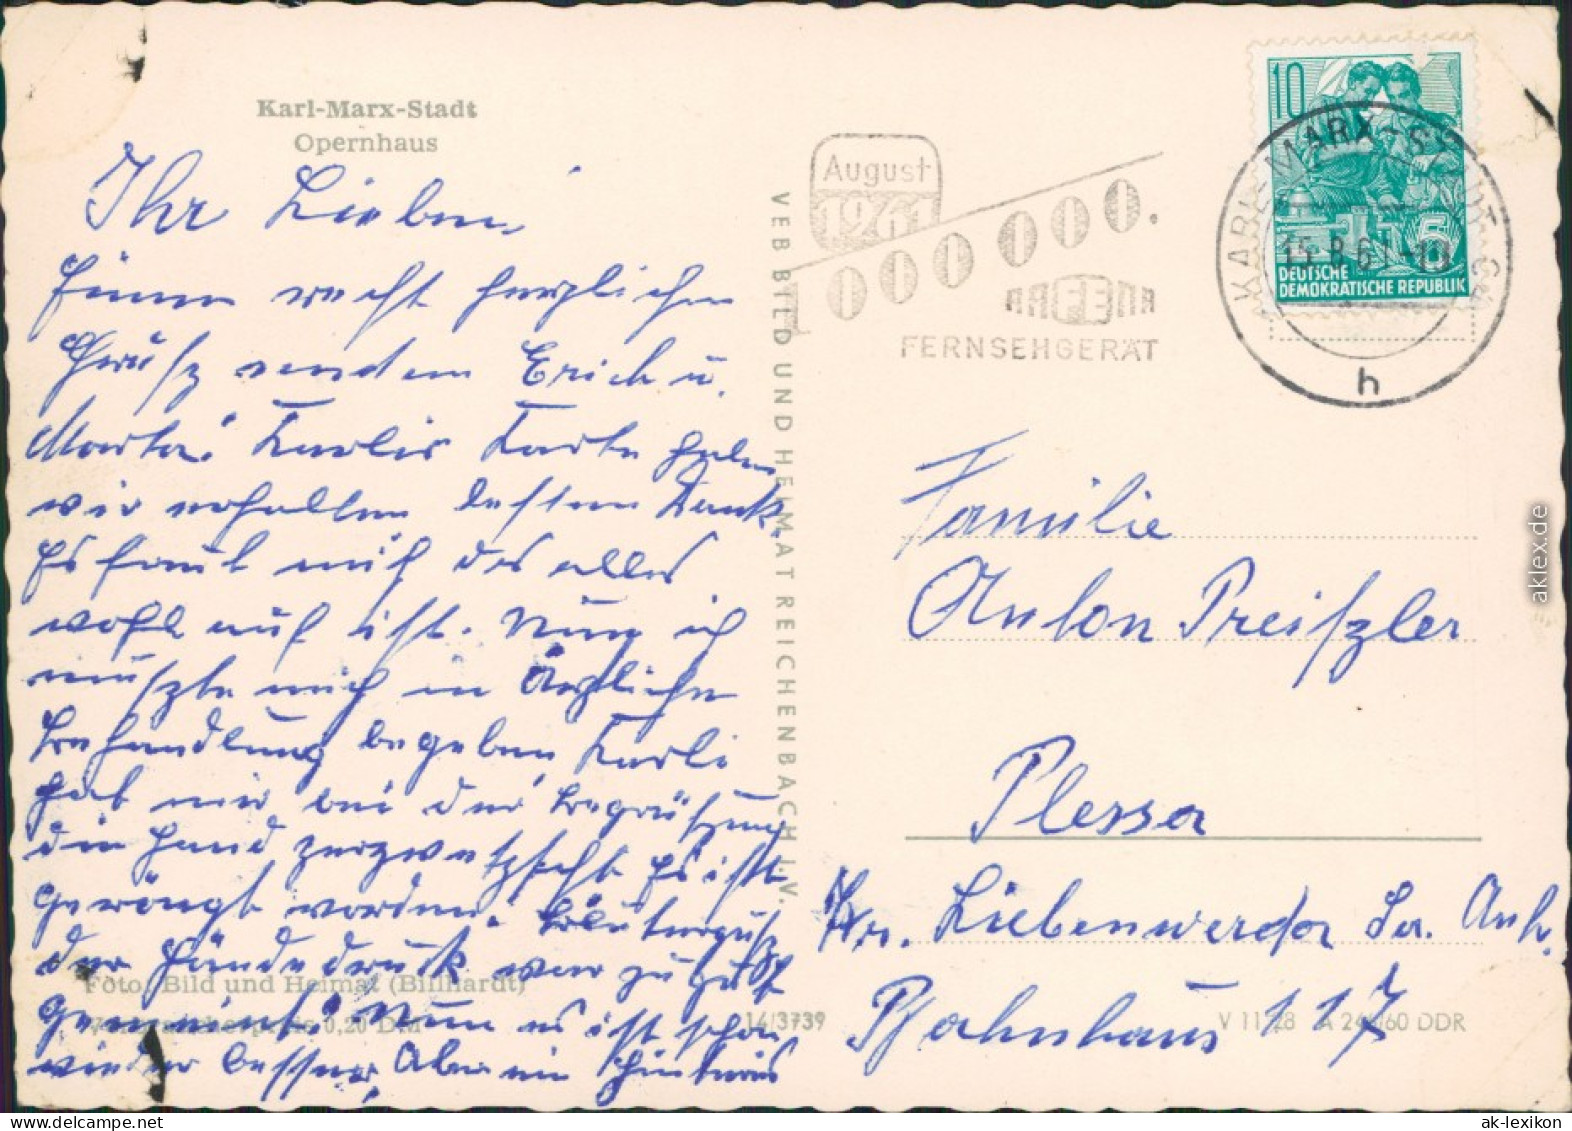 Karl-Marx-Stadt
Opernhaus
Ihr Lieben,
Einen recht herzlichen
Gruß senden Erich u.
Marta. Karlis Karte haben
wir erhalten besten Dank,
Es freut mich das alles
wohl auf ist. Nun ich
mußte mich in Ärzliche
Behandlung begeben, Karli
hat mir bei der Begrüßung
die Hand zerquetscht Es ist
geröngt worden. Bluterguß
der Händedruck war zu gut
gemeint. Nun es ist schon
wieder besser, Aber ein
Foto: Bild und Heimat (Billhardt)
0,20 DM
VEB BILD UND HEIMAT REICHENBACH I. V.
14/3739
V 11 28 A 24/60 DDR
August
1961
1 000 000.
RAFENA
FERNSEHGERÄT
10
5
DEUTSCHE
DEMOKRATISCHE REPUBLIK
KARL-MARX-STADT
15.8.61-10
h
Familie
Anton Preißzler
Plessa
Kr. Liebenwerda Sa. Anh.
Bahnhaus 117
aklex.de
www.delcampe.net
ak-lexikon